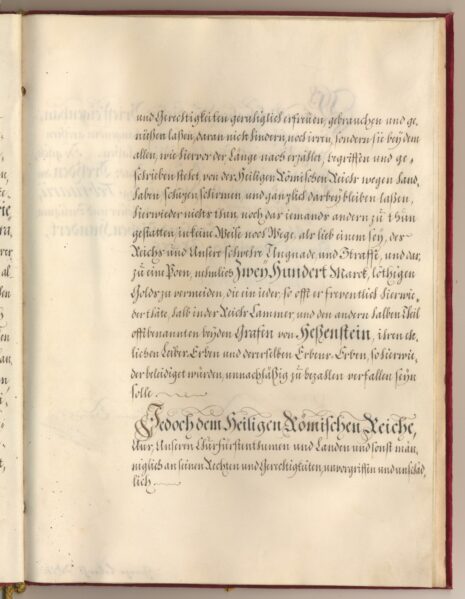 und Gerechtigkeiten geruhiglich erfreuen, gebrauchen und ge,
nießen laßen, daran nicht hindern, noch irren, sondern sie bey dem
allen, wie hiervor der Länge nach erzählet, begriffen und ge,
schrieben stehet, von der Heiligen Römischen Reichs wegen hand,
haben, schüzen, schirmen, und gänzlich darbey bleiben laßen,
hierwieder nichts thun, noch daß jemands andern zu thun
gestatten, in keine Weise noch Wege, als lieb einem sey, des
Reichs und Unsere schwehre Ungnade und Straffe, und dar,
zu ein Poen, nehmlich Zwey Hundert Marck löthigen
Golds zu vermeiden, die ein jeder, so offt er freventlich hierwie,
der thäte, halb in der Reichs Cammer, und den andern halben Theil
offtbenannten beyden Grafin von Heßenstein, ihren ehe,
lichen Leibes Erben und derenselben Erbens-Erben, so hierwie,
der beleidiget würden, unnachläßig zu bezahlen verfallen seyn
solle.
Jedoch dem Heiligen Römischen Reiche,
Auch Unseren Churfürstenthumen und Landen und sonst män,
niglich an seinen Rechten und Gerechtigkeiten, unvorgriffen und unschäd,
lich.